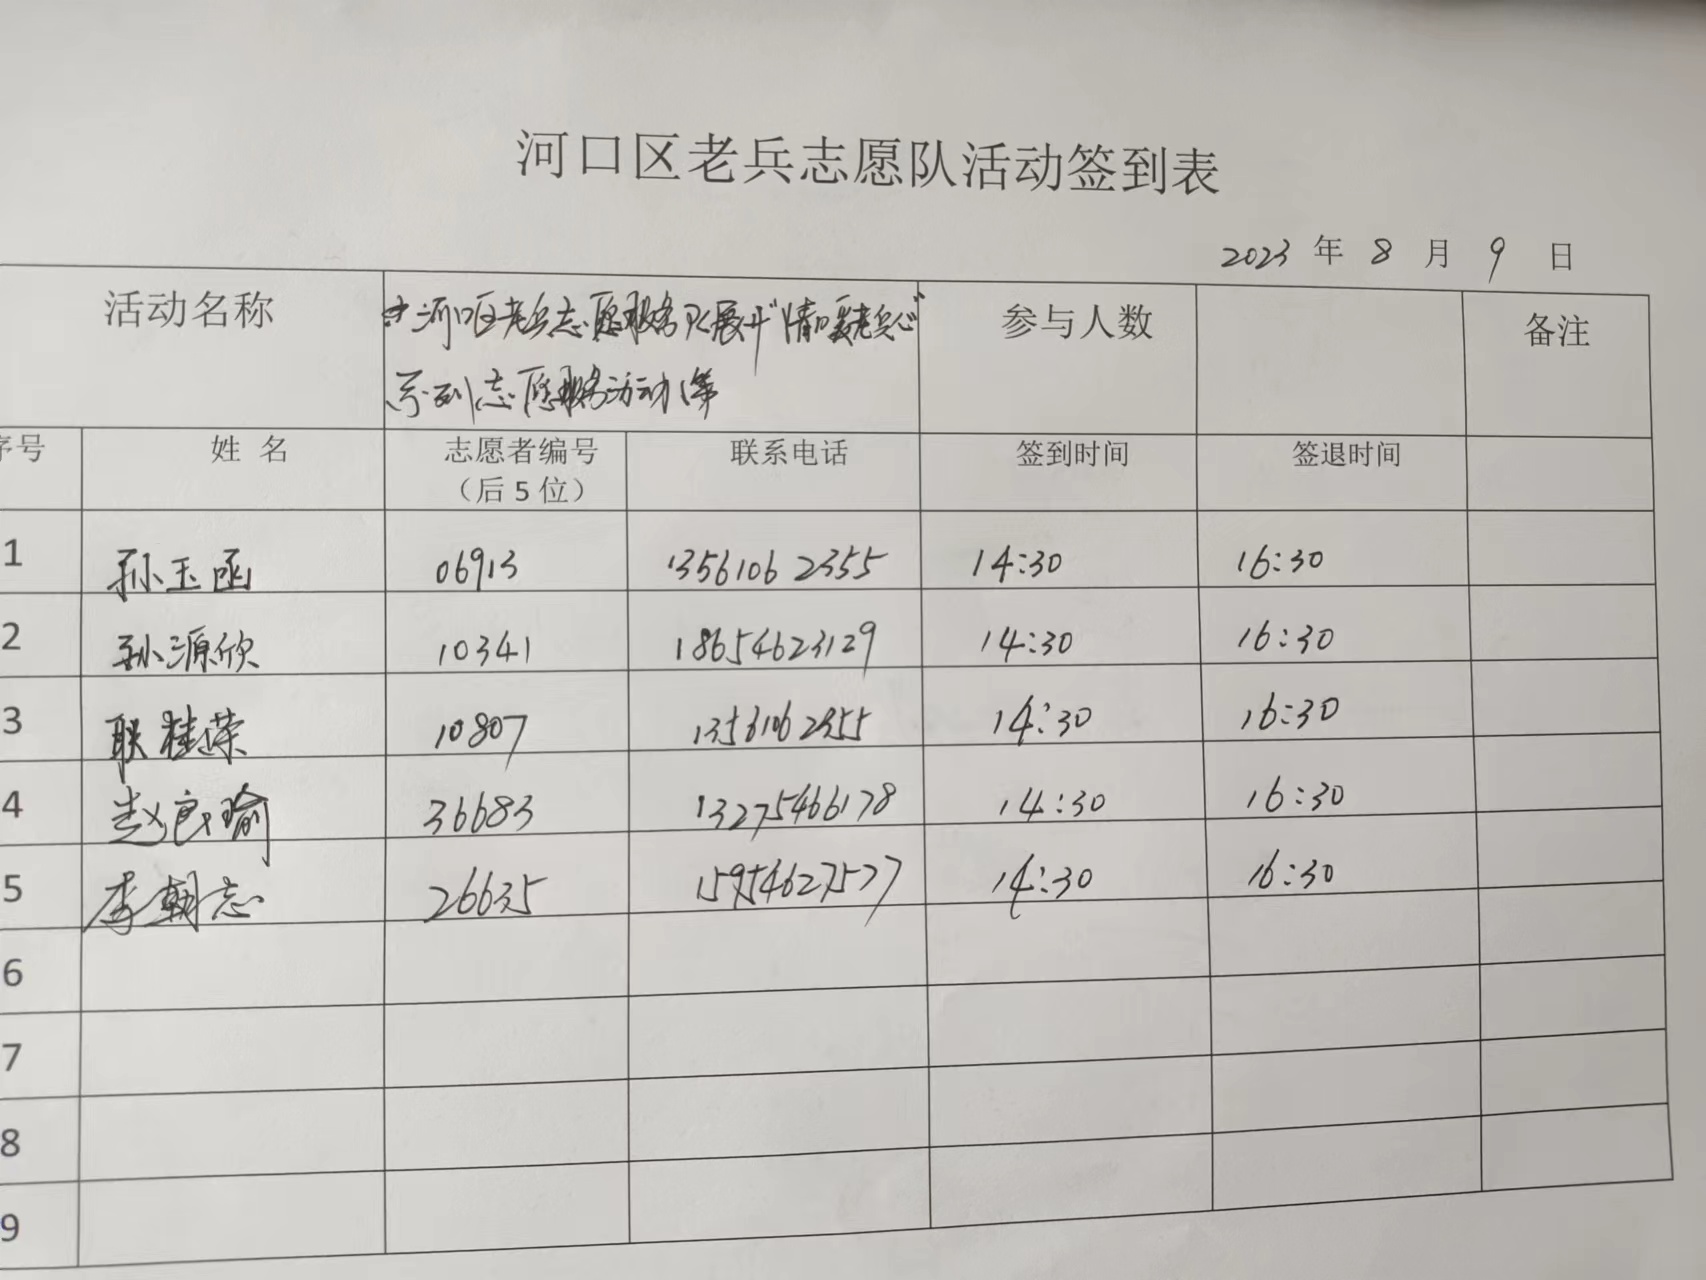 河口区老兵志愿队活动签到表
2023 年 8 月 9 日
活动名称 河口区老兵志愿服务队展开“情暖老兵心” 参与人数 备注
系列志愿服务活动
序号 姓 名 志愿者编号 联系电话 签到时间 签退时间
（后 5 位）
1 孙玉函 06913 13561062355 14:30 16:30
2 孙源欣 10341 18654623129 14:30 16:30
3 耿桂荣 10807 13561062355 14:30 16:30
4 赵良瑜 36683 13275466178 14:30 16:30
5 李朝志 26635 15954627577 14:30 16:30
6
7
8
9